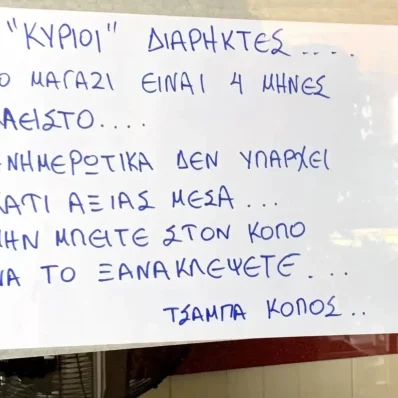 "ΚΥΡΙΟΙ" ΔΙΑΡΗΚΤΕΣ....
Ο ΜΑΓΑΖΙ ΕΙΝΑΙ 4 ΜΗΝΕΣ
ΛΕΙΣΤΟ....
ΝΗΜΕΡΩΤΙΚΑ ΔΕΝ ΥΠΑΡΧΕΙ
ΑΤΙ ΑΞΙΑΣ ΜΕΣΑ...
ΗΝ ΜΠΕΙΤΕ ΣΤΟΝ ΚΟΠΟ
ΝΑ ΤΟ ΞΑΝΑΚΛΕΨΕΤΕ....
ΤΣΑΜΠΑ ΚΟΠΟΣ..